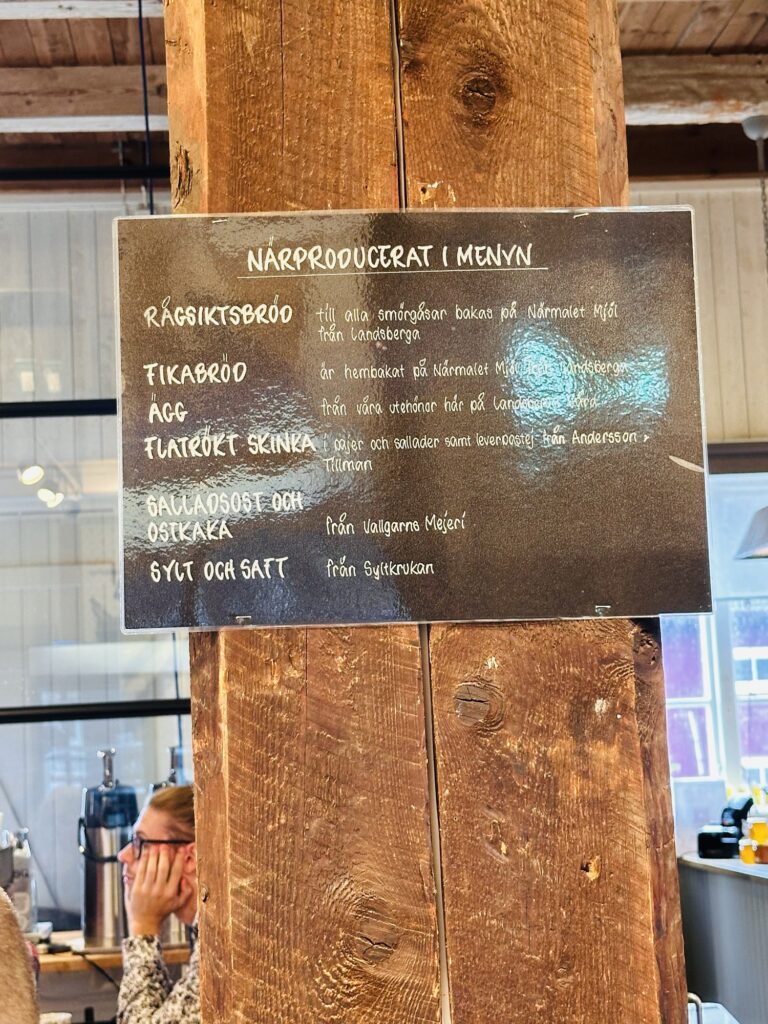 NÄRPRODUCERAT I MENYN
RÅGSIKTSBRÖD till alla smörgåsar bakas på Närmalet Mjöl
från Landsberga
FIKABRÖD är hembakat på Närmalet Mjöl från Landsberga
ÄGG från våra utehönor här på Landsberga
FLATRÖKT SKINKA i pajer och sallader samt leverpastej från Andersson &
Tillman
SALLADSOST OCH
OSTKAKA från Vallgarns Mejeri
SYLT OCH SAFT från Syltkrukan